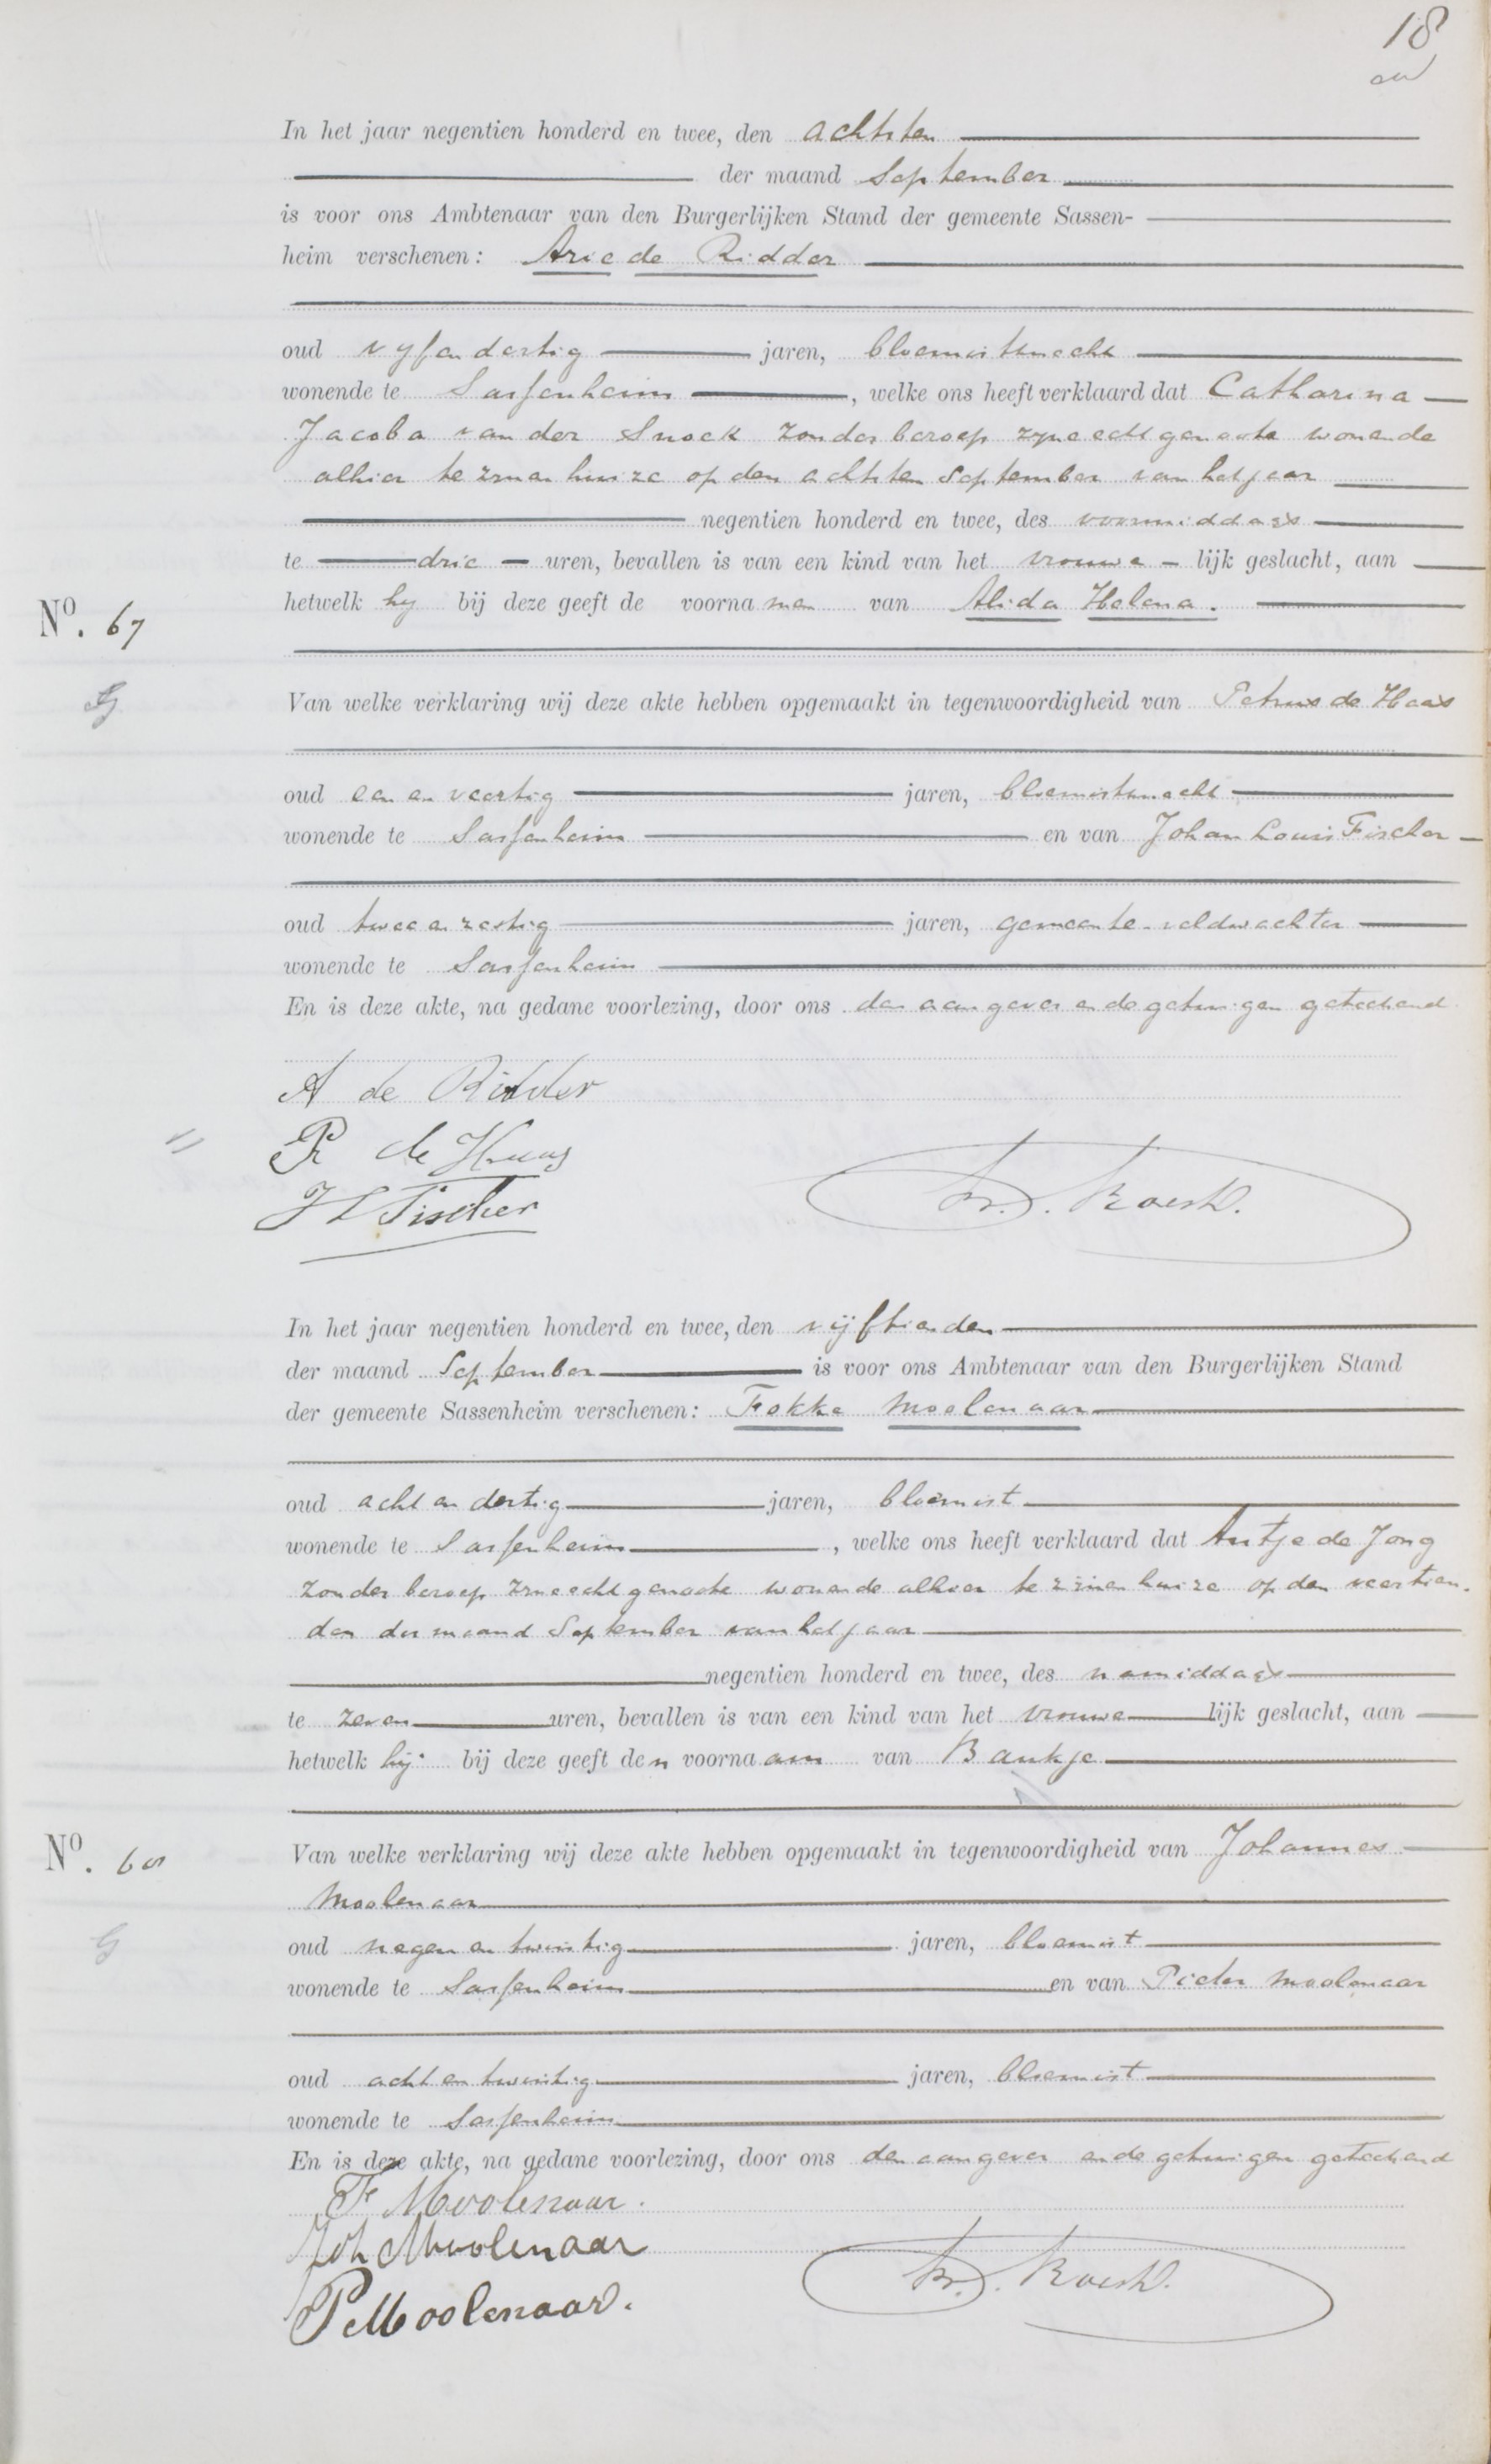 18
In het jaar negentien honderd en twee, den achtsten
der maand September
is voor ons Ambtenaar van den Burgerlijken Stand der gemeente Sassen-
heim verschenen: Arie de Ridder
oud vyfendertig jaren, bloemistknecht
wonende te Sassenheim, welke ons heeft verklaard dat Catharina
Jacoba van der Snoek zonder beroep zyne echtgenoote wonende
alhier te zynen huize op den achtsten September van het jaar
negentien honderd en twee, des voormiddags
te drie uren, bevallen is van een kind van het vrouwe - lijk geslacht, aan
hetwelk hy bij deze geeft de voornamen van Alida Helena.
No. 67
Van welke verklaring wij deze akte hebben opgemaakt in tegenwoordigheid van Petrus de Haas
oud een en veertig jaren, bloemistknecht
wonende te Sassenheim en van Johan Louis Fischer
oud twee en zestig jaren, gemeente-veldwachter
wonende te Sassenheim
En is deze akte, na gedane voorlezing, door ons den aangever en de getuigen geteekend
A de Ridder
P de Haas
J L Fischer
In het jaar negentien honderd en twee, den vijftienden
der maand September is voor ons Ambtenaar van den Burgerlijken Stand
der gemeente Sassenheim verschenen: Fokke Moolenaar
oud acht en dertig jaren, bloemist
wonende te Sassenheim, welke ons heeft verklaard dat Antje de Jong
zonder beroep zyne echtgenoote wonende alhier te zijnen huize op den veertien-
den der maand September van het jaar
negentien honderd en twee, des namiddags
te zeven uren, bevallen is van een kind van het vrouwe lijk geslacht, aan
hetwelk hij bij deze geeft den voornaam van Baukje
No. 68
Van welke verklaring wij deze akte hebben opgemaakt in tegenwoordigheid van Johannes
Moolenaar
oud negen en twintig jaren, bloemist
wonende te Sassenheim en van Pieter Moolenaar
oud acht en twintig jaren, bloemist
wonende te Sassenheim
En is deze akte, na gedane voorlezing, door ons den aangever en de getuigen geteekend
F Moolenaar.
Joh Moolenaar
P Moolenaar.